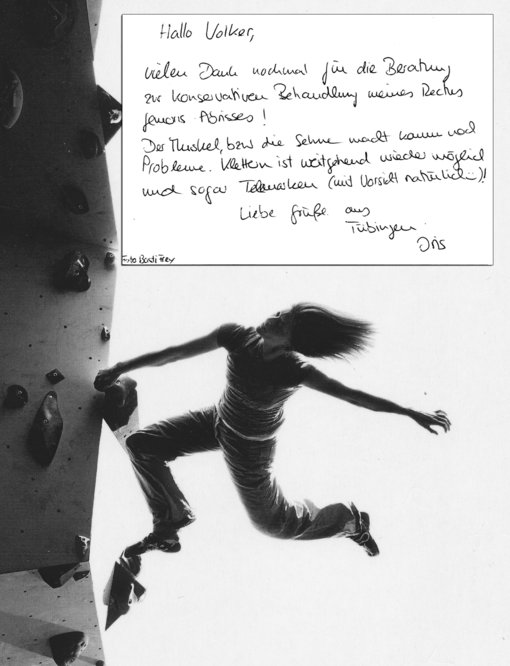 Hallo Volker,
vielen Dank nochmal für die Beratung
zur konservativen Behandlung meines Rectus
femoris Abrisses!
Der Muskel, bzw die Sehne macht kaum noch
Probleme. Klettern ist weitgehend wieder möglich
und sogar Telemarken (mit Vorsicht natürlich)!
Liebe Grüße aus
Tübingen
Iris
Foto